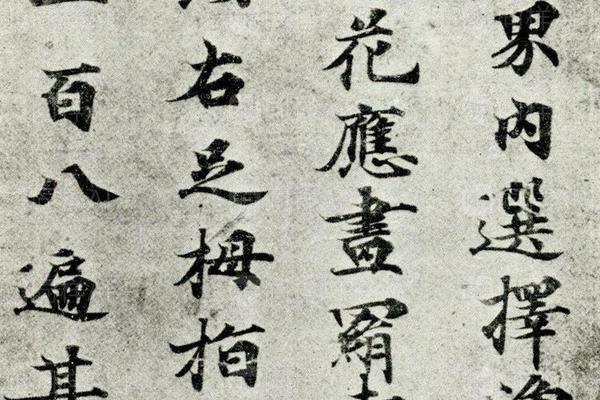 界內選擇
花應畫羂
右足栂指
百八遍其